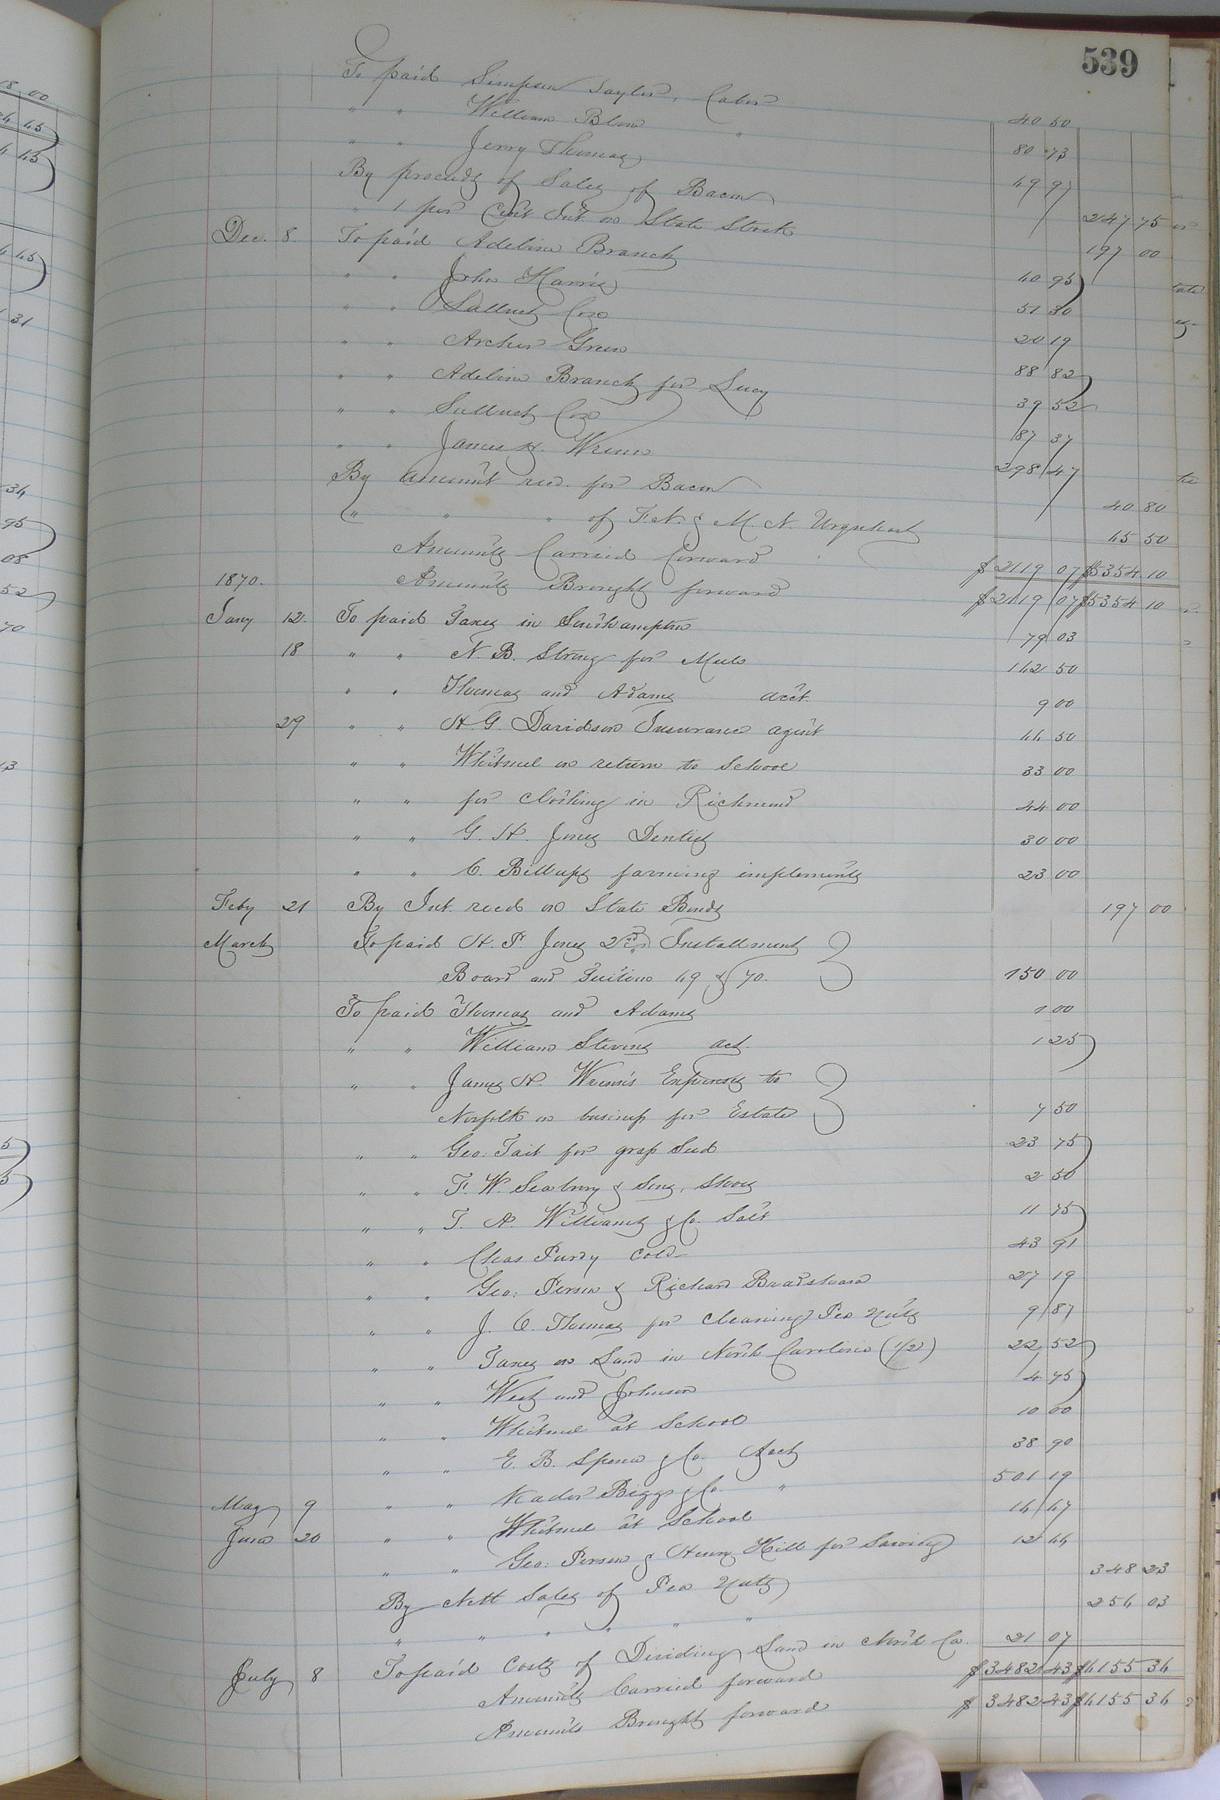 539
To paid Simpson Taylor, Labor 40 50
" " William Blow " 80 73
" " Jerry Thomas 49 97
By proceeds of Sales of Bacon 247 75
" 1 per Cent Int. on State Stock 197 00
Dec. 8. To paid Adeline Branch 40 95
" " John Harris 51 30
" " Salluch Cox 20 19
" " Archer Green 88 82
" " Adeline Branch for Lucy 39 52
" " Salluch Cox 87 37
" " James H. Wrenn 298 47
By amount recd. for Bacon 40 80
" " " of F. N. & M. N. Urquhart 45 50
Amounts Carried forward $2119 07 $5354 10
1870. Amounts Brought forward $2119 07 $5354 10
Jany 12. To paid Taxes in Southampton 79 03
18 " " N. B. String for Mule 142 50
" " Thomas and Adams acct. 9 00
29 " " H. G. Davidson Insurance agent 44 50
" " Whitmel on return to School 33 00
" " for clothing in Richmond 44 00
" " G. H. Jones Dentist 30 00
" " C. Billups farming implements 23 00
Feby 21 By Int. recd on State Bonds 197 00
March To paid H. P. Jones 2nd Installment
Board and Tuition 69 & 70. 150 00
To paid Thomas and Adams 1 00
" " William Stevens act. 1 25
" " James H. Wrenn's Expenses to
Norfolk on business for Estate 7 50
" " Geo: Tait for grass Seed 23 75
" " F. W. Seabury & Sons, Shoes 2 50
" " T. A. Williams & Co. Salt 11 75
" " Chas Purdy Cold 43 91
" " Geo: Person & Richard Bradshaw 27 19
" " J. C. Thomas for cleaning Pea Nuts 9 87
" " Taxes on Land in North Carolina (1/2) 22 52
" " West and Johnson 4 75
" " Whitmel at School 10 00
" " E. B. Spence & Co. Acct 38 90
" " Kader Biggs & Co. " 501 19
May 9 " " Whitmel at School 14 47
June 20 " " Geo: Person & Henry Hill for Sawing 12 44
By Nett Sales of Pea Nuts 348 23
" " " " " " 254 03
July 8 To paid Costs of Dividing Land in North Ca. 21 07
Amounts Carried forward $3482 43 $6155 36
Amounts Brought forward $3482 43 $6155 36